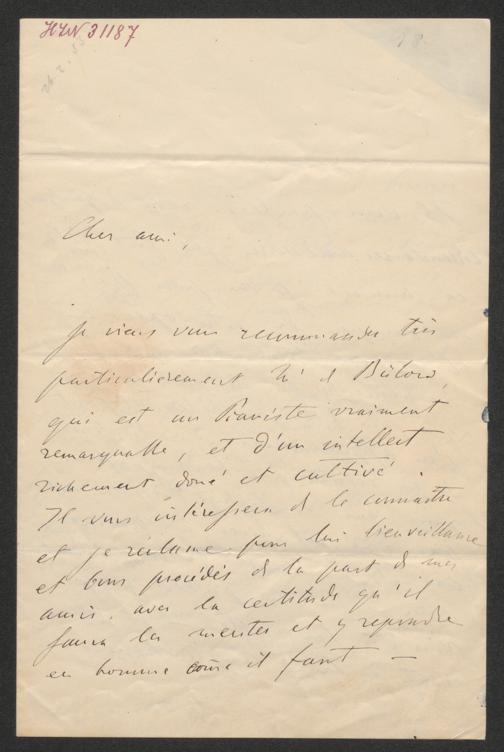 HIN 31187
Cher ami,
je viens vous recommander très
particulièrement Mr d Bülow,
qui est un Pianiste vraiment
remarquable, et d'un intellect
richement doué et cultivé.
Il vous intéressera d le connaître
et je réclame pour lui bienveillance
et bons procédés d la part de mes
amis, avec la certitude qu'il
saura les mériter et y repondre
en homme come il faut —